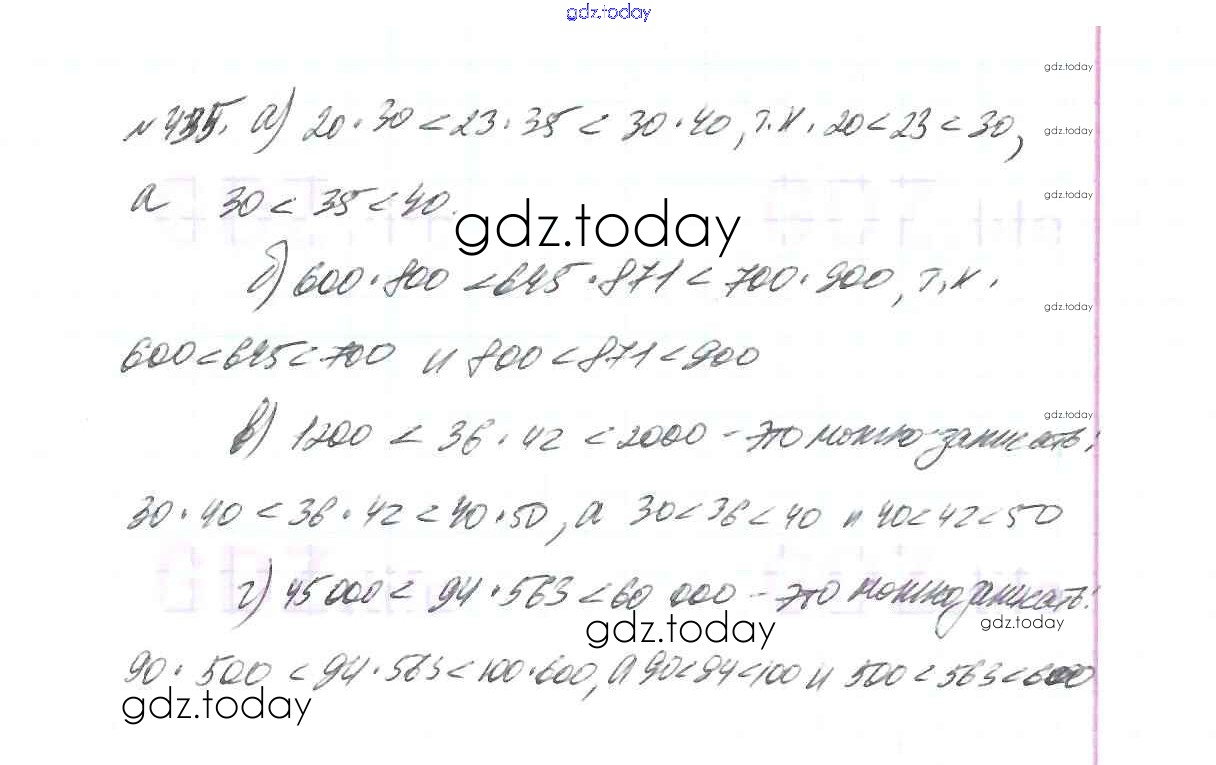 gdz.today
gdz.today
№ 435. а) 20·30<23·35< 30·40, т.к. 20<23<30,
gdz.today
gdz.today
а 30< 35<40.
gdz.today
б) 600·800 <645·871< 700·900, т.к.
gdz.today
600<645<700 и 800<871<900
gdz.today
в) 1200 < 36·42 <2000 - это можно записать:
30·40<36·42<40·50, а 30<36<40 и 40<42<50
г) 45000< 94·563<60 000 - это можно записать:
gdz.today
gdz.today
90·500 <94·563<100·600, а 90<94<100 и 500<563<600
gdz.today